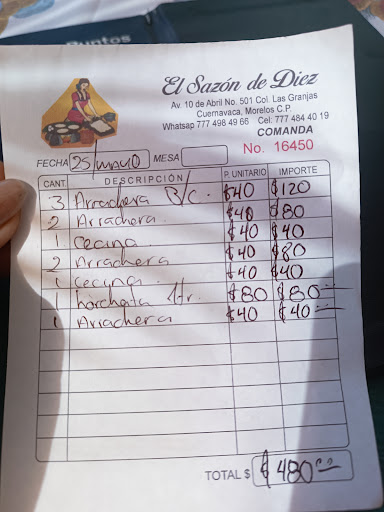 Puntos
El Sazón de Diez
Av. 10 de Abril No. 501 Col. Las Granjas
Cuernavaca, Morelos C.P.
Whatsapp 777 498 49 66 Cel: 777 484 40 19
COMANDA
No. 16450
FECHA 25/mayo MESA
CANT. DESCRIPCIÓN P. UNITARIO IMPORTE
3 Arrachera B/C. $40 $120
2 Arrachera $40 $80
1 Cecina $40 $40
2 Arrachera $40 $80
1 Cecina $40 $40
1 horchata 1tr. $80 $80
1 Arrachera $40 $40
TOTAL $ $480.00